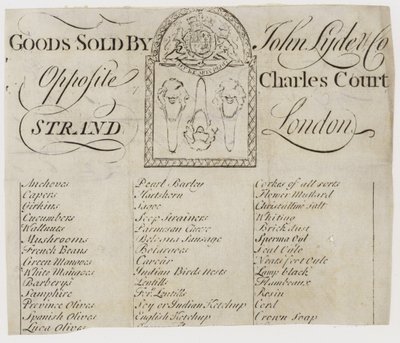 GOODS SOLD BY John Lyde & Co
Opposite Charles Court
STRAND London
Anchoves
Capers
Girkins
Cucumbers
Wallnuts
Mushrooms
French Beans
Green Mangoes
White Mangoes
Barberys
Samphire
Province Olives
Spanish Olives
Luca Olives
Pearl Barley
Hartshorn
Sago
Soop Strainers
Parmesan Cheese
Bologna Sausage
Botargoes
Caveár
Indian Bird Nests
Lentills
For. Lentills
Soy or Indian Ketchup
English Ketchup
Corks of all sorts
Flower Mustard
Christalline Salt
Whiting
Brick dust
Sperma Oyl
Seal Oyle
Neats foot Oyle
Lamp black
Flambeaux
Rosin
Cord
Crown Soap